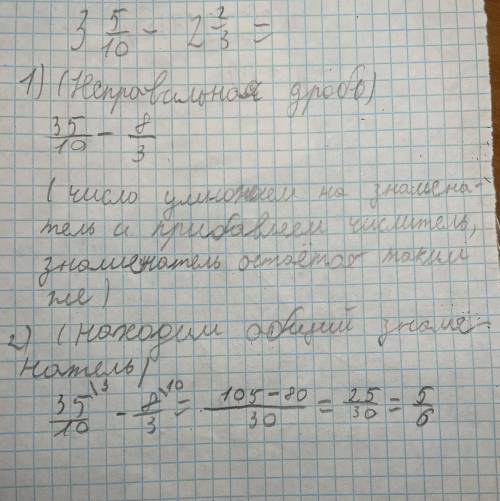 3 5/10 - 2 2/3 =
1) (Неправильная дробь)
35/10 - 8/3
(число умножаем на знамена-
тель и прибавляем числитель,
знаменатель остаётся таким
же)
2) (находим общий знаме-
натель)
35\3/10 - 8\10/3 = 105-80/30 = 25/30 = 5/6